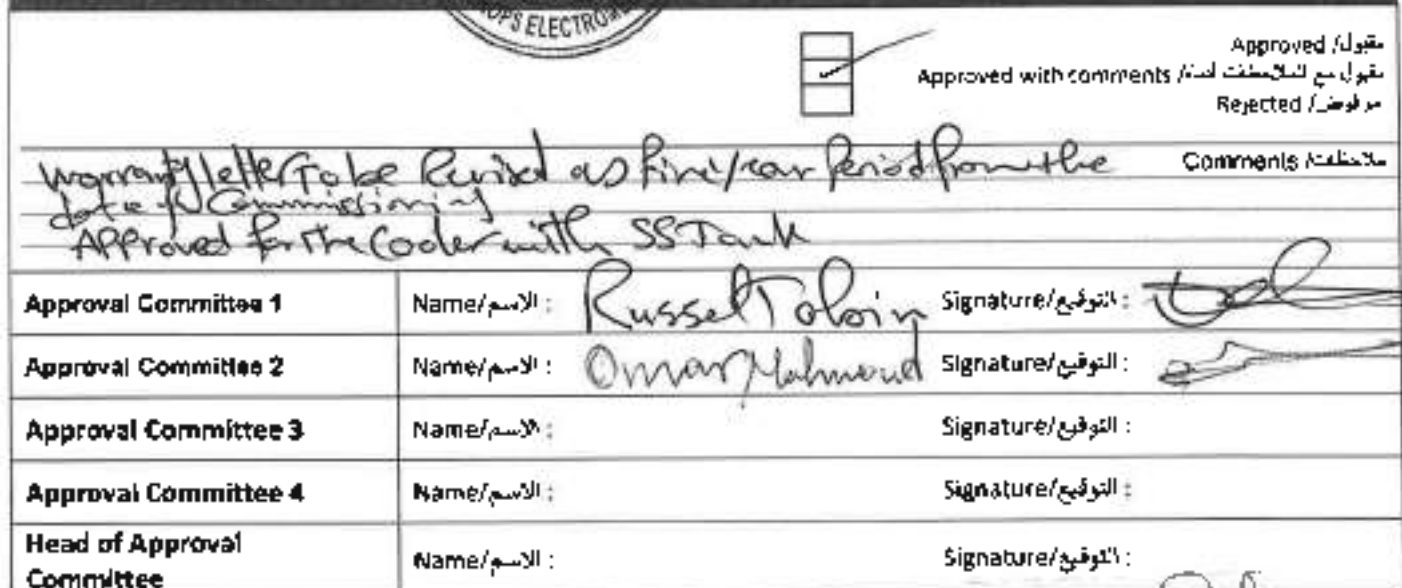 OPS ELECTROM
Approved /مقبول
Approved with comments /مقبول مع الملاحظات أدناه
Rejected /مرفوض
Comments /ملاحظات
Warranty letter To be Revised as five year Period from the
date of Commissioning
APProved for the Cooler with SS Tank
Approval Committee 1 Name/الاسم : Russel Toloin Signature/التوقيع :
Approval Committee 2 Name/الاسم : Omar Mahmoud Signature/التوقيع :
Approval Committee 3 Name/الاسم : Signature/التوقيع :
Approval Committee 4 Name/الاسم : Signature/التوقيع :
Head of Approval
Committee Name/الاسم : Signature/التوقيع :